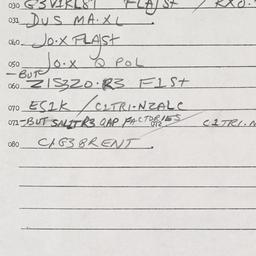 030 G3V1RL8T FLAJST / RXO.
031 DUS MA.XL
040 JO.X FLAJST
050 JO.X Q POL
-BUT
060 21S3ZO.R3 F1ST
070 ES1K / C1TRI-NZALC
071 -BUT SALTR3 GAP FACTORIES C1TRI.N
072
080 CHG38RENT.